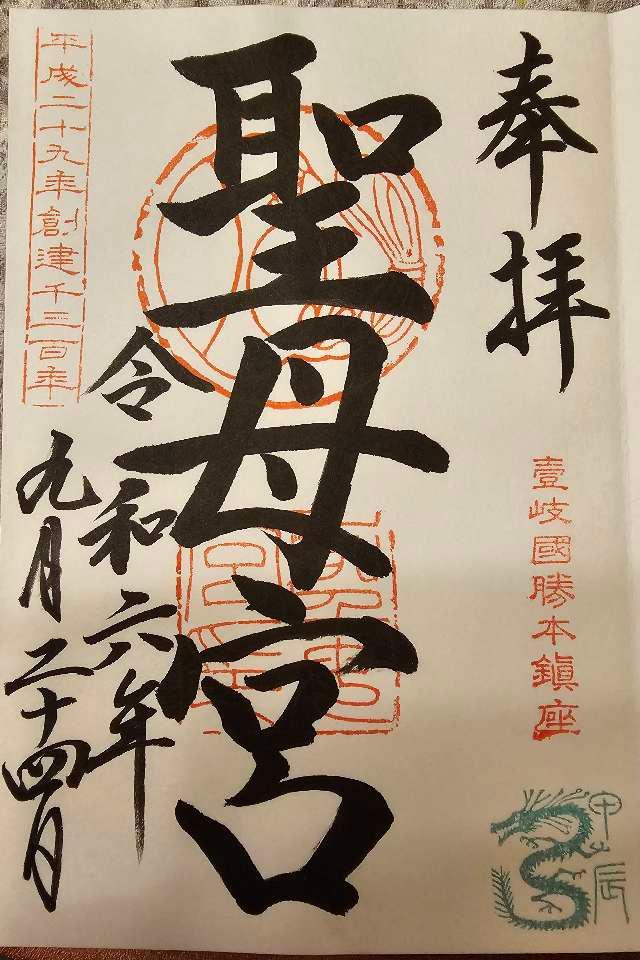 奉拝
壹岐國勝本鎭座
甲辰
聖母宮
令和六年
九月二十四日
平成二十九年創建千三百年